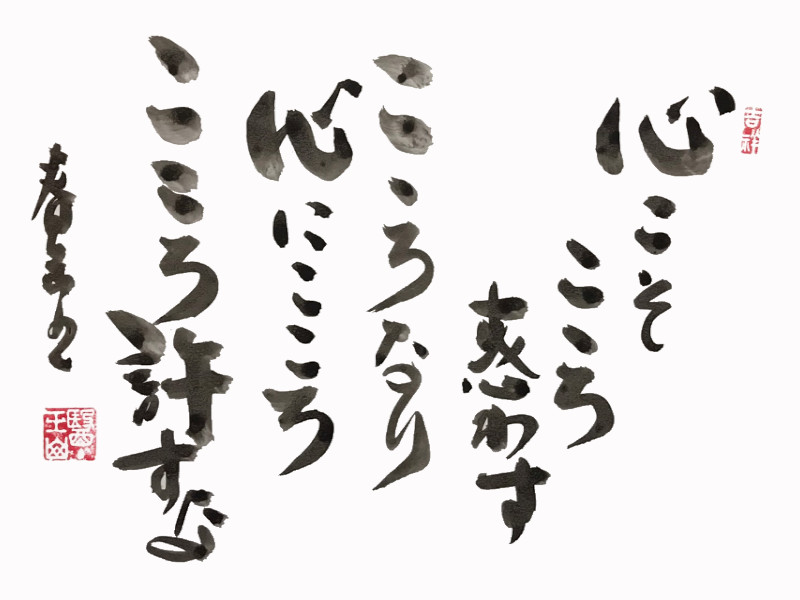 心こそ
こころ
惑わす
こころなり
心にこころ
こころ許すな
吉祥